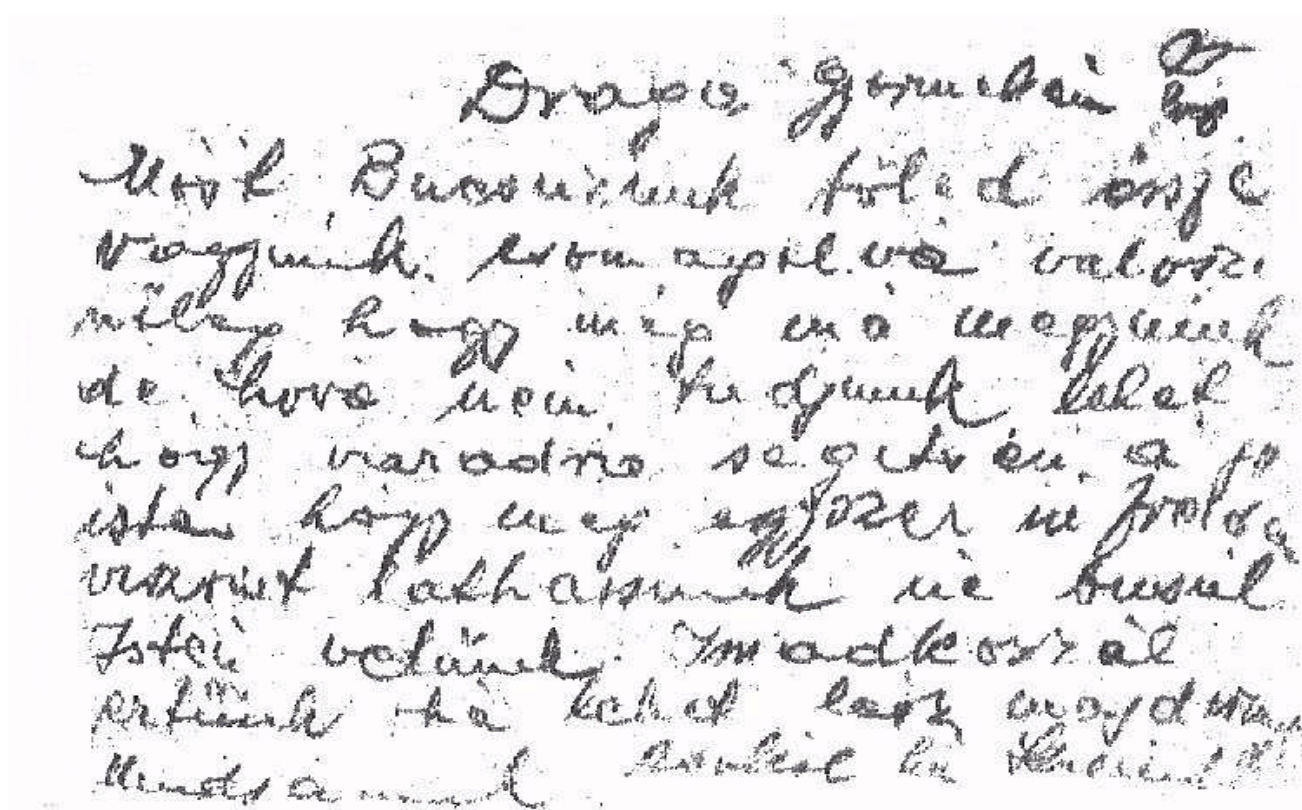 Draga gyermekein
Most Bucsuzunk töled össze
vagyunk csomagolva valoszi
nüleg hogy még má megyünk
de hova nem tudjunk lehet
hogy varadra segitsen a jo
isten hogy meg egyszer
viszont lathassunk ne busul
Isten velünk Imadkozzál
ertünk ha lehet lesz majd